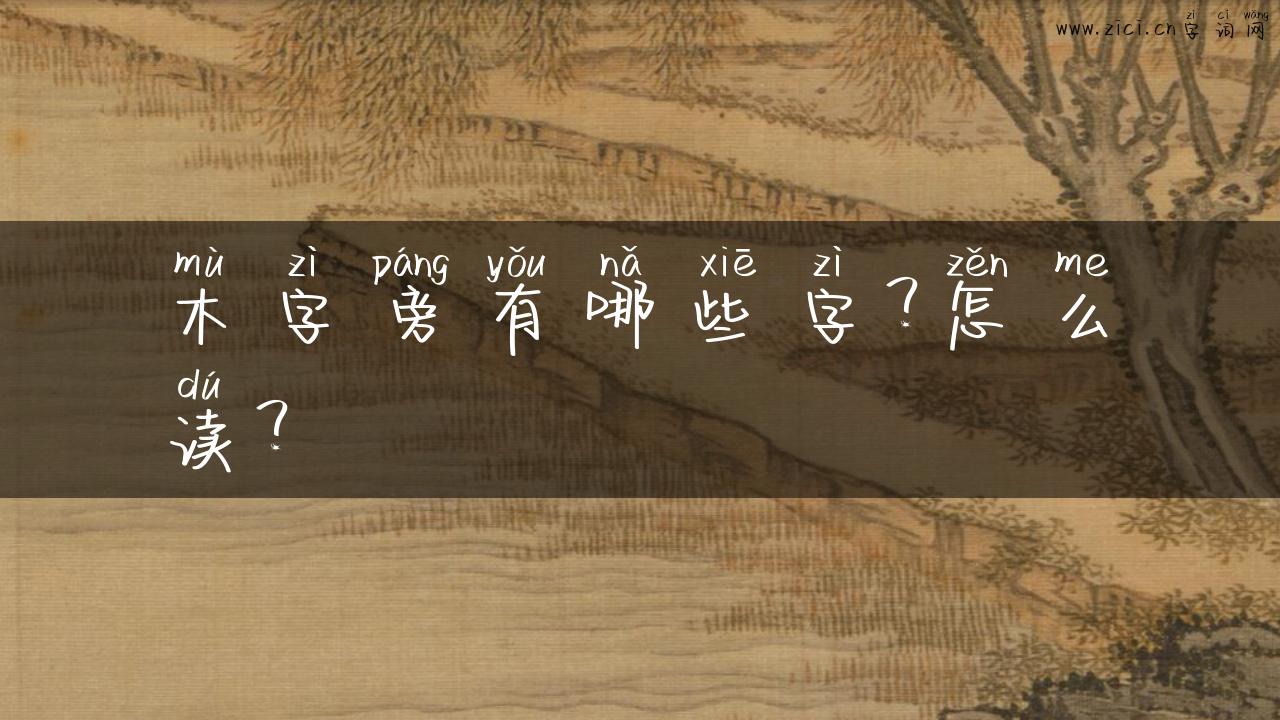 zì cí wǎng
www.zici.cn字词网
mù zì páng yǒu nǎ xiē zì zěn me
木字旁有哪些字？怎么
dú
读？